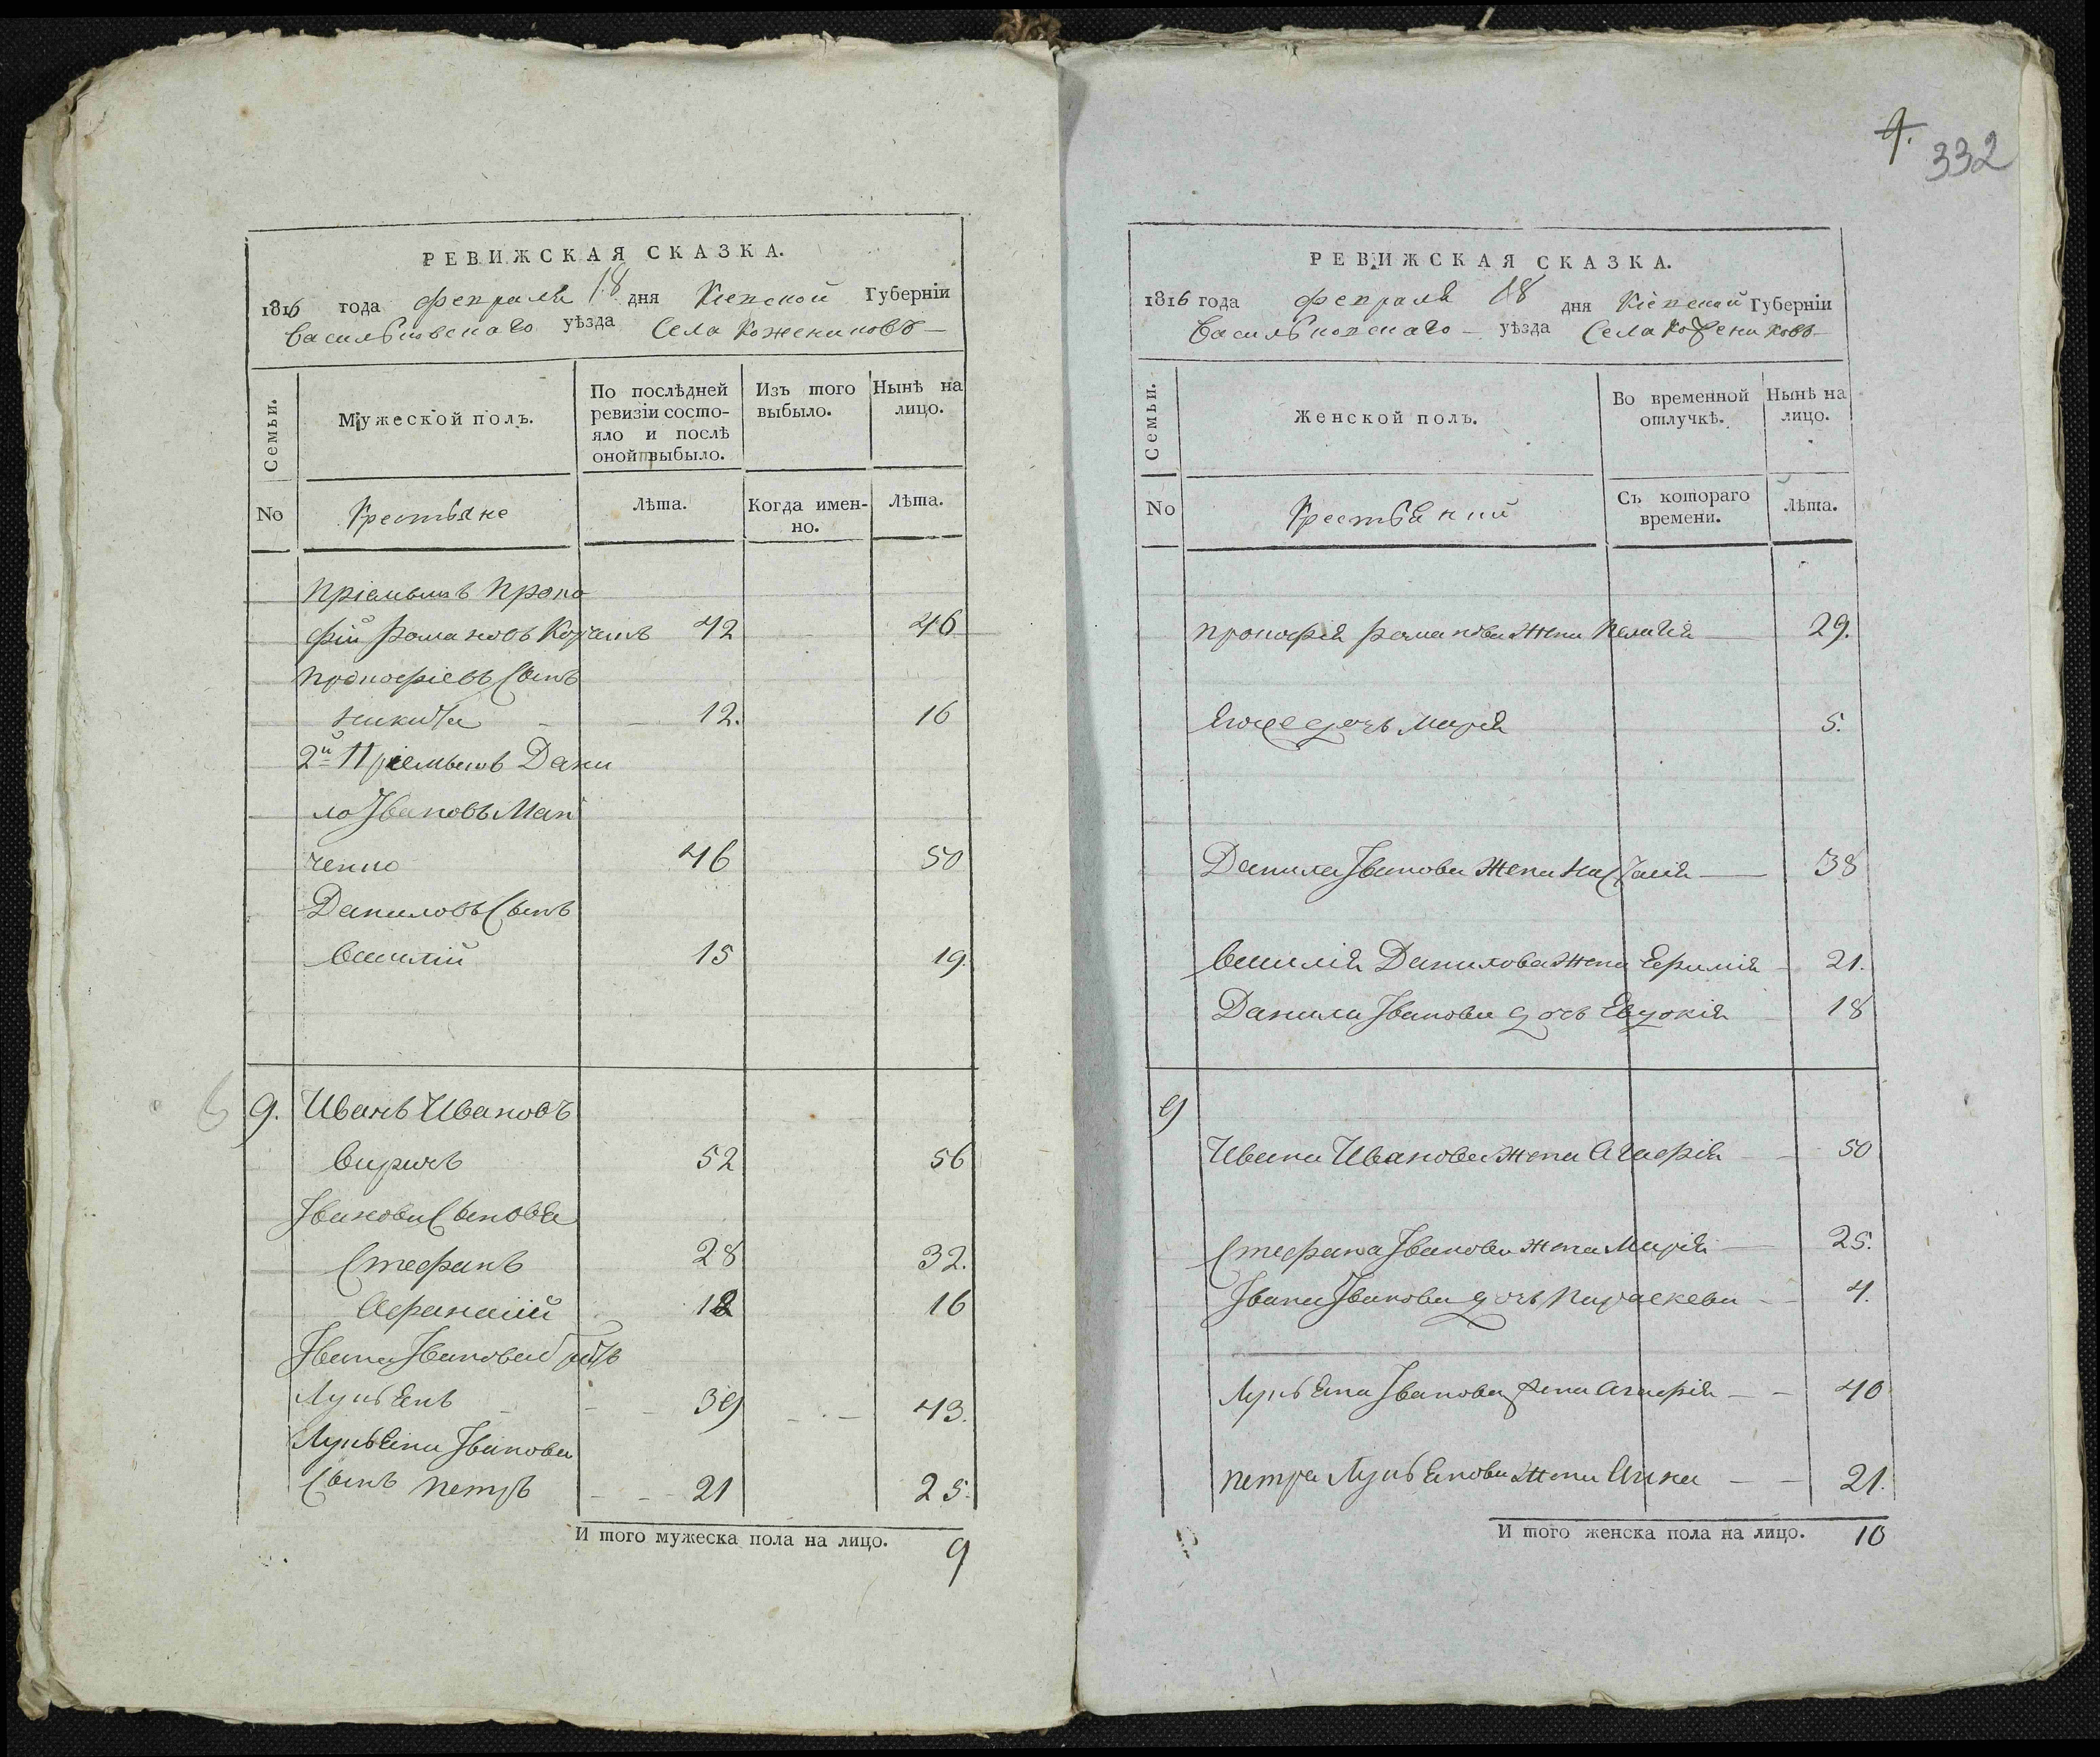 РЕВИЖСКАЯ СКАЗКА.
1816 года февраля 18 дня Кіевской Губерніи
Васильковскаго уѣзда Села Кожениковъ
Семьи.
Мужеской полъ.
По послѣдней ревизіи состо-
яло и послѣ
оной выбыло.
Изъ того
выбыло.
Нынѣ на
лицо.
No
Крестьяне
Лѣта.
Когда имен-
но.
Лѣта.
Пріемышъ Проко
фій Романовъ 42 46
Прокофіевъ Сынъ
Никита 12. 16
2й Пріемышъ Дани
ло Івановъ Ман
ченко 46 50
Даниловъ Сынъ
Василій 15 19.
9. Иванъ Ивановъ
52 56
Іванова Сыновья
Стефанъ 28 32.
Афанасій 12 16
Івана Іванова братъ
Лукьянъ 39 43.
Лукьяна Іванова
Сынъ Петръ 21 25.
И того мужеска пола на лицо. 9
4.
332
РЕВИЖСКАЯ СКАЗКА.
1816 года февраля 18 дня Кіевской Губерніи
Васильковскаго уѣзда Села Кожениковъ
Семьи.
Женской полъ.
Во временной
отлучкѣ.
Нынѣ на
лицо.
No
Крестьянки
Съ котораго
времени.
Лѣта.
Прокофія Романова Жена Пелагія 29.
Егоже дочь Марія 5.
Данила Іванова Жена Настасія 38
Василія Данилова Жена Ефимія 21.
Данила Іванова дочь Евдокія 18
9
Ивана Иванова жена Агафія 50
Стефана Іванова жена Марія 25.
Івана Іванова дочь Параскева 4.
Лукьяна Іванова жена Агафія 40
Петра Лукьянова Жена Анна 21.
И того женска пола на лицо. 10